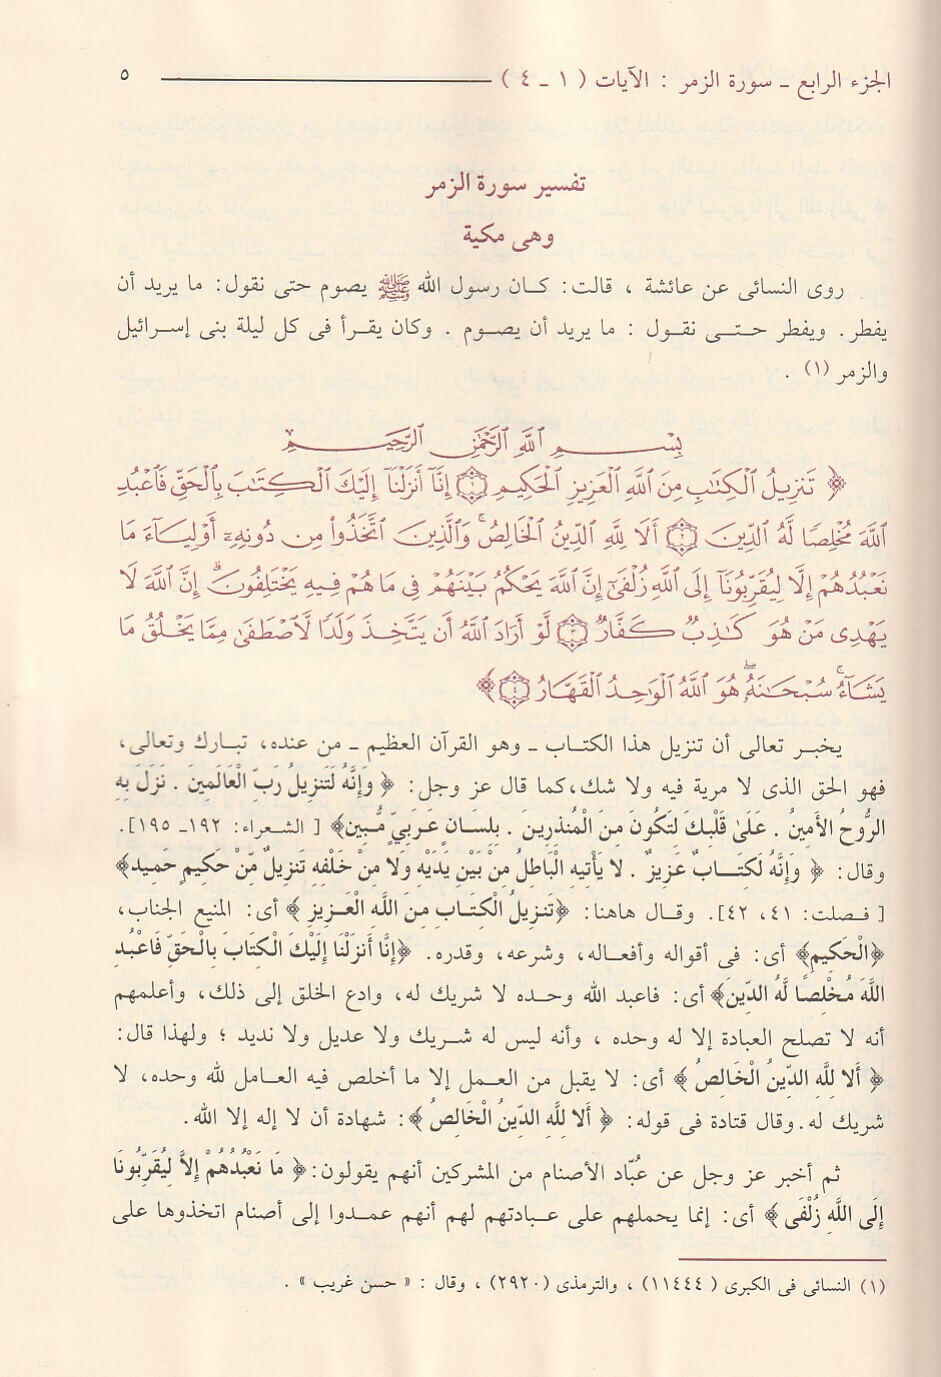 الجزء الرابع ـ سورة الزمر : الآيات ( ١ ـ ٤ ) ٥
تفسير سورة الزمر
وهى مكية
روى النسائى عن عائشة ، قالت: كـان رسول الله ﷺ يصوم حتى نقول: ما يريد أن
يفطر. ويفطر حـتـى نقول : ما يريد أن يصـوم . وكان يقـرأ فى كل ليلة بنى إسـرائيل
والزمر (١) .
بِسْمِ ٱللَّهِ ٱلرَّحْمَٰنِ ٱلرَّحِيمِ
﴿ تَنزِيلُ ٱلْكِتَٰبِ مِنَ ٱللَّهِ ٱلْعَزِيزِ ٱلْحَكِيمِ ١ إِنَّآ أَنزَلْنَآ إِلَيْكَ ٱلْكِتَٰبَ بِٱلْحَقِّ فَٱعْبُدِ
ٱللَّهَ مُخْلِصًا لَّهُ ٱلدِّينَ ٢ أَلَا لِلَّهِ ٱلدِّينُ ٱلْخَالِصُ ۚ وَٱلَّذِينَ ٱتَّخَذُوا۟ مِن دُونِهِۦٓ أَوْلِيَآءَ مَا
نَعْبُدُهُمْ إِلَّا لِيُقَرِّبُونَآ إِلَى ٱللَّهِ زُلْفَىٰٓ إِنَّ ٱللَّهَ يَحْكُمُ بَيْنَهُمْ فِى مَا هُمْ فِيهِ يَخْتَلِفُونَ ۗ إِنَّ ٱللَّهَ لَا
يَهْدِى مَنْ هُوَ كَٰذِبٌ كَفَّارٌ ٣ لَّوْ أَرَادَ ٱللَّهُ أَن يَتَّخِذَ وَلَدًا لَّٱصْطَفَىٰ مِمَّا يَخْلُقُ مَا
يَشَآءُ ۚ سُبْحَٰنَهُۥ ۖ هُوَ ٱللَّهُ ٱلْوَٰحِدُ ٱلْقَهَّارُ ٤ ﴾
يخبـر تعالى أن تنزيل هذا الكتـاب ـ وهو القرآن العظيم ـ من عنده، تبـارك وتعالى،
فهو الحق الذى لا مرية فيه ولا شك،كما قال عز وجل: ﴿ وَإِنَّهُ لَتَنزِيلُ رَبِّ الْعَالَمِينَ . نَزَلَ بِهِ
الرُّوحُ الأَمِينُ . عَلَىٰ قَلْبِكَ لِتَكُونَ مِنَ الْمُنذِرِينَ . بِلِسانٍ عَرَبِيٍّ مُّبِينٍ﴾ [ الشـعراء: ١٩٢ـ ١٩٥].
وقال: ﴿ وَإِنَّهُ لَكِتَـــابٌ عَزِيزٌ . لا يَأْتِيهِ الْبَاطِلُ مِنْ بَيْنِ يَدَيْهِ وَلا مِنْ خَلْفِهِ تَنزِيلٌ مِّنْ حَكِيمٍ حَمِيدٍ﴾
[ فـصلت: ٤١، ٤٢]. وقـال هاهنا: ﴿تَنزِيلُ الْكِتَـابِ مِنَ اللَّهِ الْعَـزِيزِ ﴾ أى: المنيع الجناب،
﴿الْحَكِيمِ﴾ أى: فى أقواله وأفعـاله، وشرعه، وقدره. ﴿إِنَّا أَنزَلْنَا إِلَيْكَ الْكِتَابَ بِالْحَقِّ فَاعْبُدِ
اللَّهَ مُخْلِصًا لَّهُ الدِّينَ﴾ أى: فاعبد الله وحـده لا شريك له، وادع الخلق إلى ذلك، وأعلمهم
أنه لا تصلح العبادة إلا له وحده ، وأنه ليس له شـريك ولا عديل ولا نديد ؛ ولهذا قال:
﴿ أَلا لِلَّهِ الدِّينُ الْخَالِصُ ﴾ أى: لا يقبل من العـمل إلا ما أخلص فيه العـامل لله وحده، لا
شريك له.وقال قتادة فى قوله: ﴿ أَلا لِلَّهِ الدِّينُ الْخَالِصُ ﴾: شهادة أن لا إله إلا الله.
ثم أخبر عز وجل عن عُبّاد الأصنام من المشركين أنهم يقولون:﴿ مَا نَعْبُدُهُمْ إِلاَّ لِيُقَرِّبُونَا
إِلَى اللَّهِ زُلْفَى ﴾ أى: إنما يحملهم على عـبادتهم لهم أنهم عمـدوا إلى أصنام اتخذوها على
(١) النسائى فى الكبرى ( ١١٤٤٤) ، والترمذى (٢٩٢٠) ، وقال : « حسن غريب » .